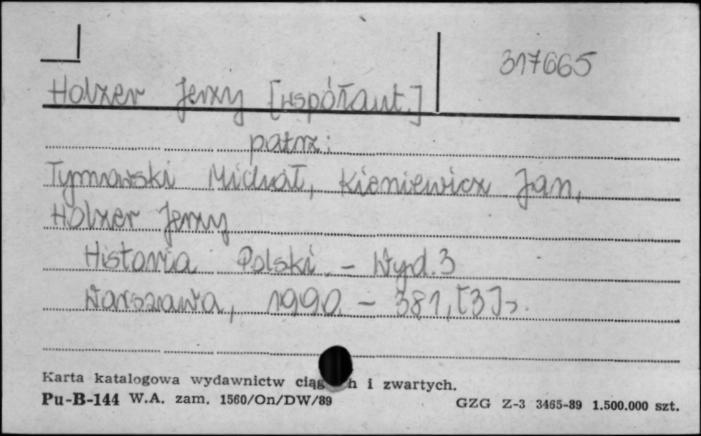 317665
Holzer Jerzy [współaut.]
patrz:
Tymowski Michał, Kieniewicz Jan,
Holzer Jerzy
Historia Polski. - Wyd. 3
Warszawa, 1990. - 381, [3] s.
Karta katalogowa wydawnictw ciąg h i zwartych.
Pu-B-144 W.A. zam. 1560/On/DW/89
GZG Z-3 3465-89 1.500.000 szt.